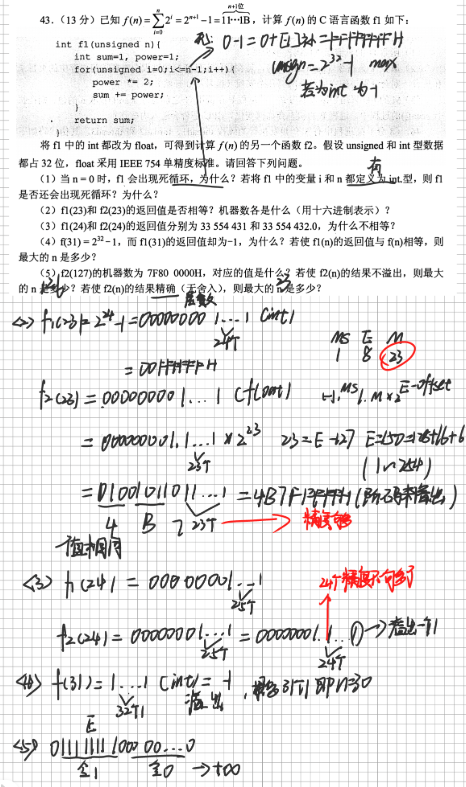 43.（13 分）已知 f(n)=∑2ⁱ=2ⁿ⁺¹−1=11⋯1B，计算 f(n) 的 C 语言函数 f1 如下：
n+1位
n
i=0
int f1(unsigned n){
int sum=1, power=1;
for(unsigned i=0;i<=n-1;i++){
power *= 2;
sum += power;
}
return sum;
0-1=0+[1]补=FFFFFFFFH
max
若为int 为-1
将 f1 中的 int 都改为 float，可得到计算 f(n) 的另一个函数 f2。假设 unsigned 和 int 型数据
都占 32 位，float 采用 IEEE 754 单精度标准。请回答下列问题。
（1）当 n = 0 时，f1 会出现死循环，为什么？若将 f1 中的变量 i 和 n 都定义为 int 型，则 f1
是否还会出现死循环？为什么？
（2）f1(23)和 f2(23)的返回值是否相等？机器数各是什么（用十六进制表示）？
（3）f1(24)和 f2(24)的返回值分别为 33 554 431 和 33 554 432.0，为什么不相等？
（4）f(31) = 2³²−1，而 f1(31)的返回值却为−1，为什么？若使 f1(n)的返回值与 f(n)相等，则
最大的 n 是多少？
（5）f2(127)的机器数为 7F80 0000H，对应的值是什么？若使 f2(n)的结果不溢出，则最大
的 n 是多少？若使 f2(n)的结果精确（无舍入），则最大的 n 是多少？
<2> f1(23)=2²⁴-1=00000000 1...1 (int)
24个
MS E M
1 8 23
=00FFFFFFH
f2(23)=00000000 1...1 (float)
=00000000 1.1...1×2²³
23个
23=E-127 E=150=128+16+6
(1~254)
=0100101101 1...1=4B7FFFFFH
4 B 7 23个
值相同
<3> f1(24)=0000000 1...1
25个
f2(24)=0000000 1...1=0000000 1.1...1→溢出一个1
25个
24个
<4> f(31)=1...1 (int)=-1
32个1
溢出
即n=30
<5> 0 11111111 000 00...0
E
全1 全0 →+∞